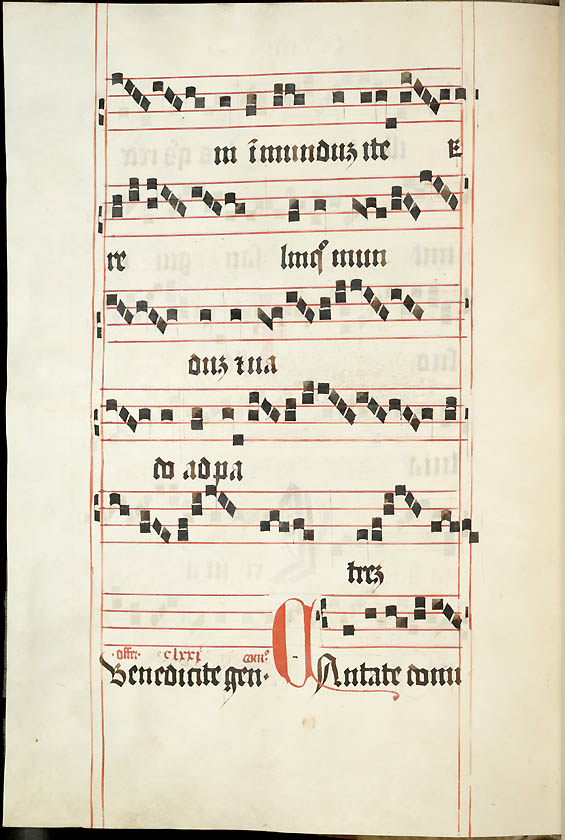 m īmunduz ite E
re linq̄ mun
duz ⁊ ua
do ad pa
trez
offer. clxxi com̄o
Benedicite gen. CAntate domi